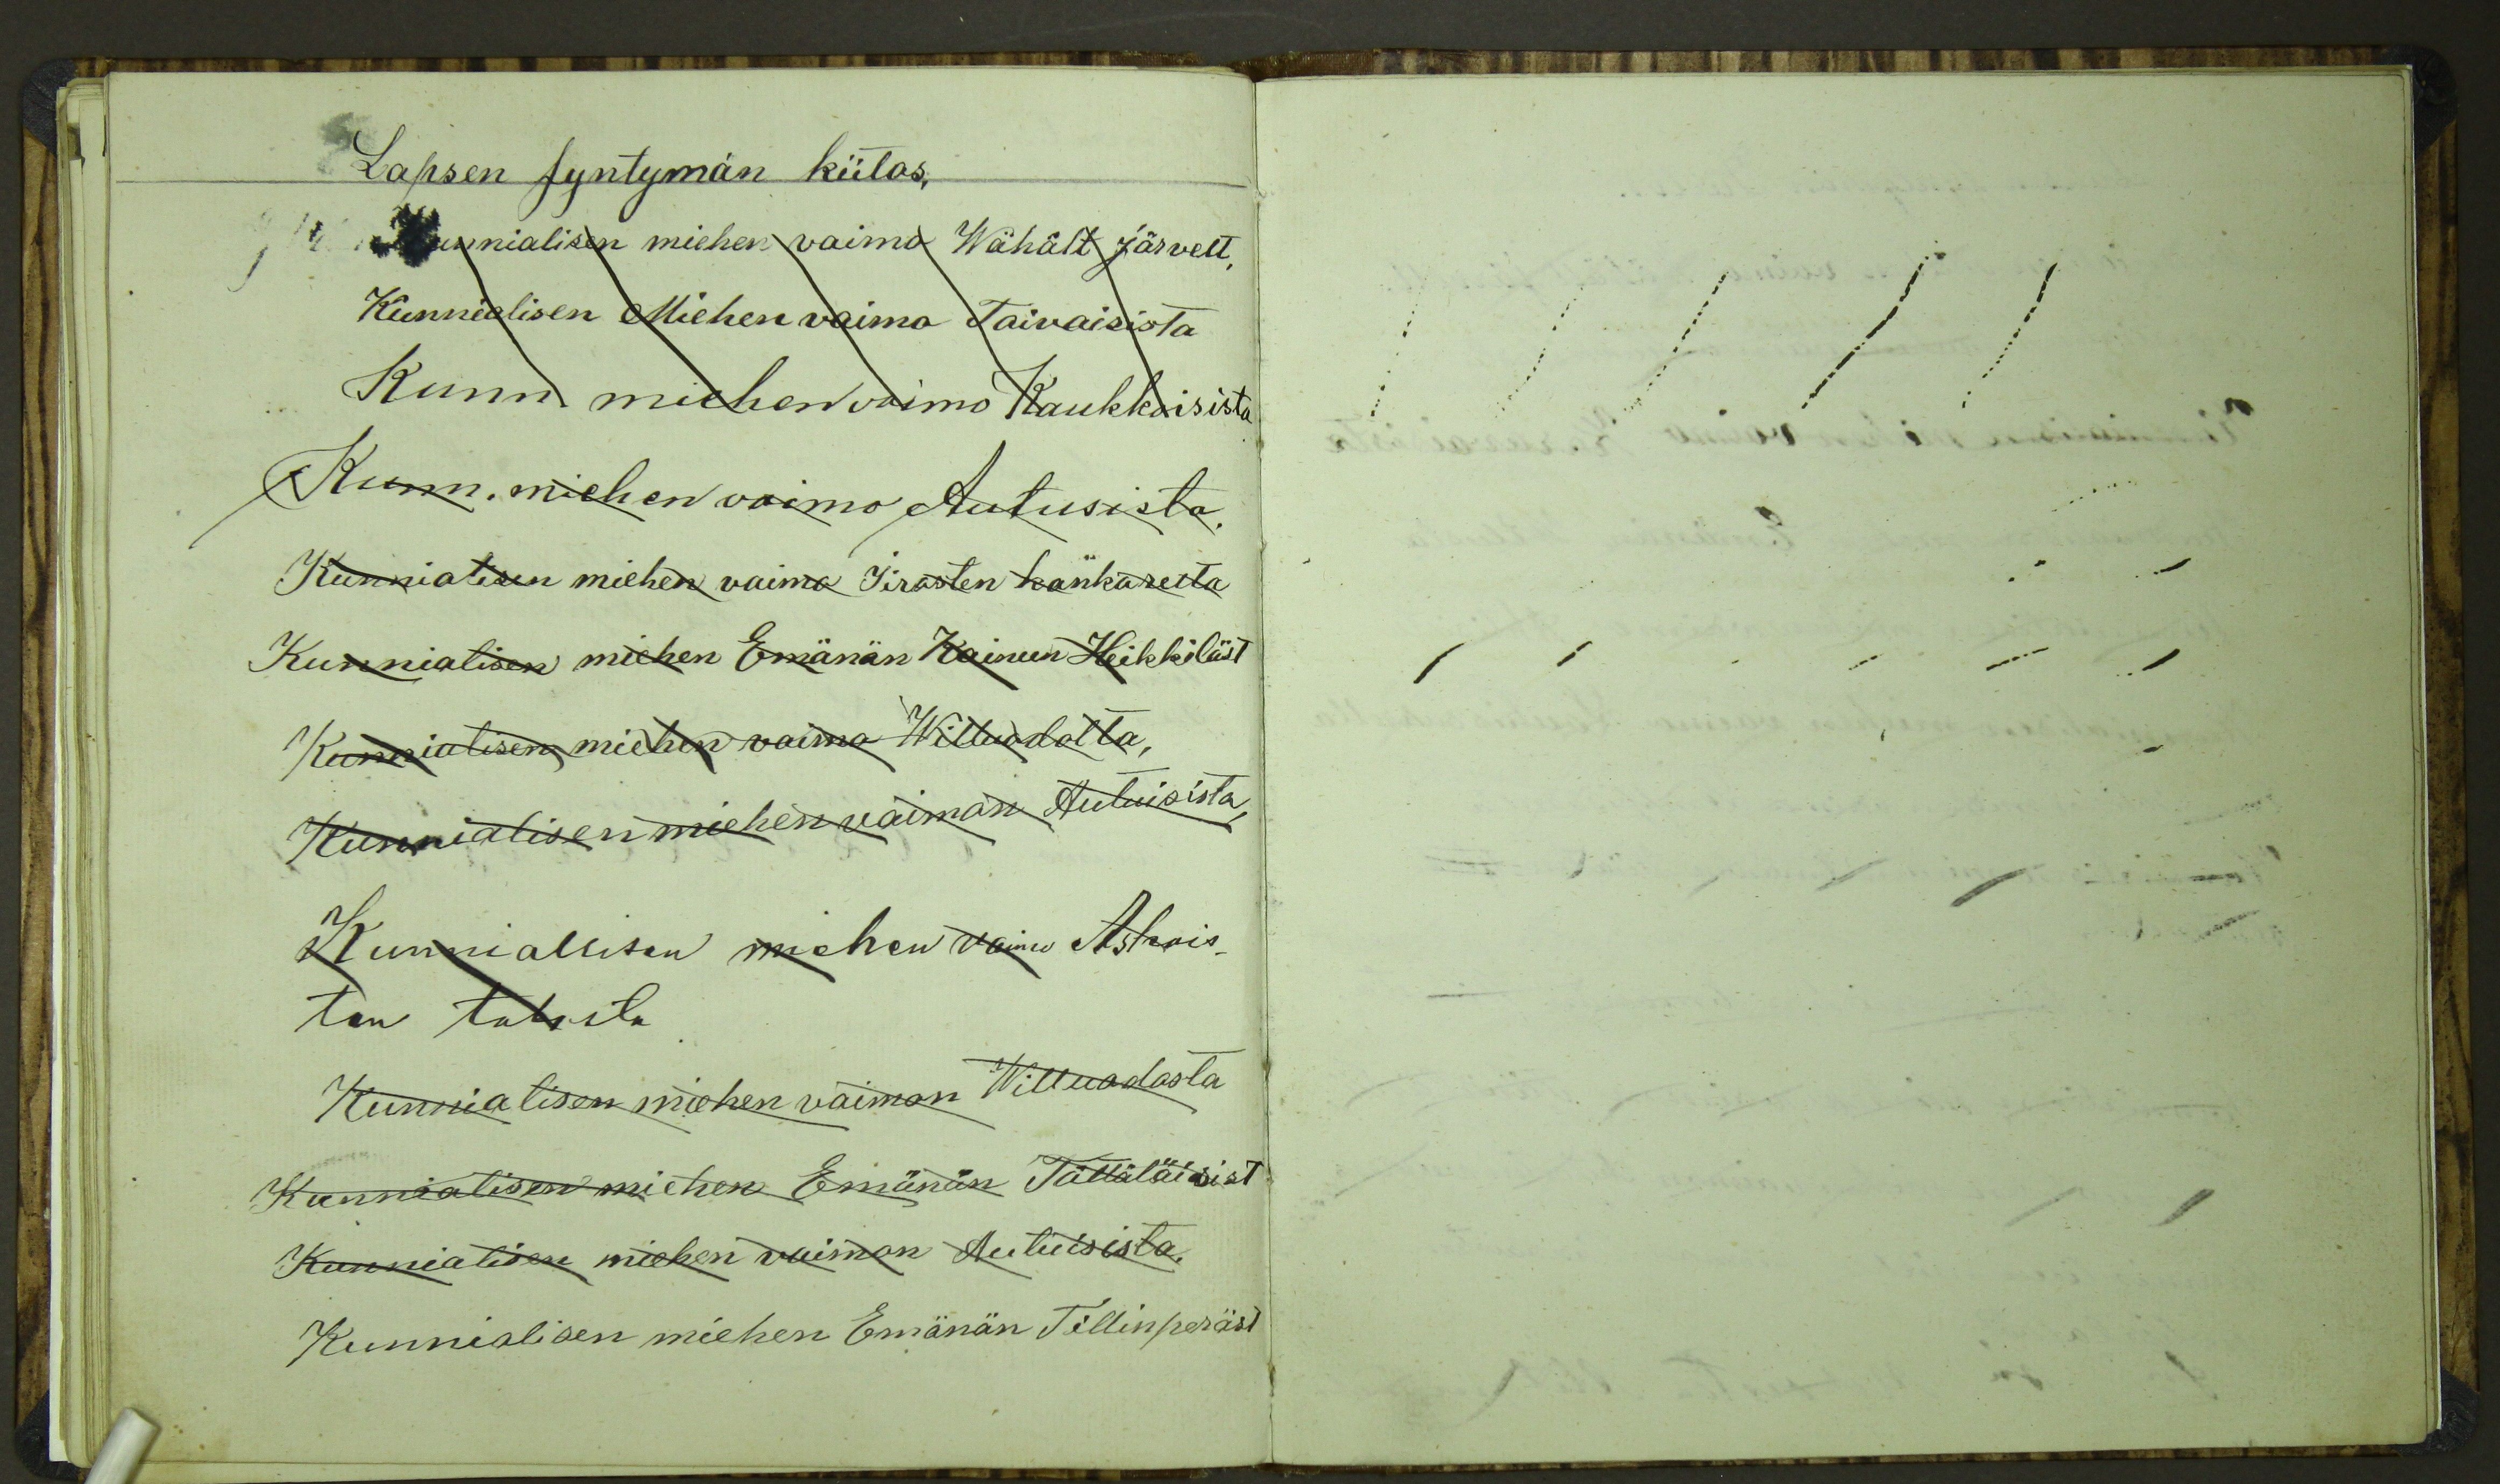 Lapsen syntymän kiitos,
Kunnialisen miehen vaimo Wähält Järvelt,
Kunnialisen Miehen vaimo Taivaisista
Kunn. miehen vaimo Kaukkoisista
Kunn. miehen vaimo Autusista.
Kunnialisen miehen vaimo Iirosten
Kunnialisen miehen Emänän Kainun Heikkiläst
Kunnialisen miehen vaimo Willuodolta,
Kunnialisen miehen vaiman Autuisista,
Kunniallisen miehen vaimo Askois-
ten talosta
Kunnialisen miehen vaimon Willuodosta
Kunnialisen miehen Emänän Tälläläisist
Kunnialisen miehen vaimon Autuisista.
Kunnialisen miehen Emänän Tillinperäst